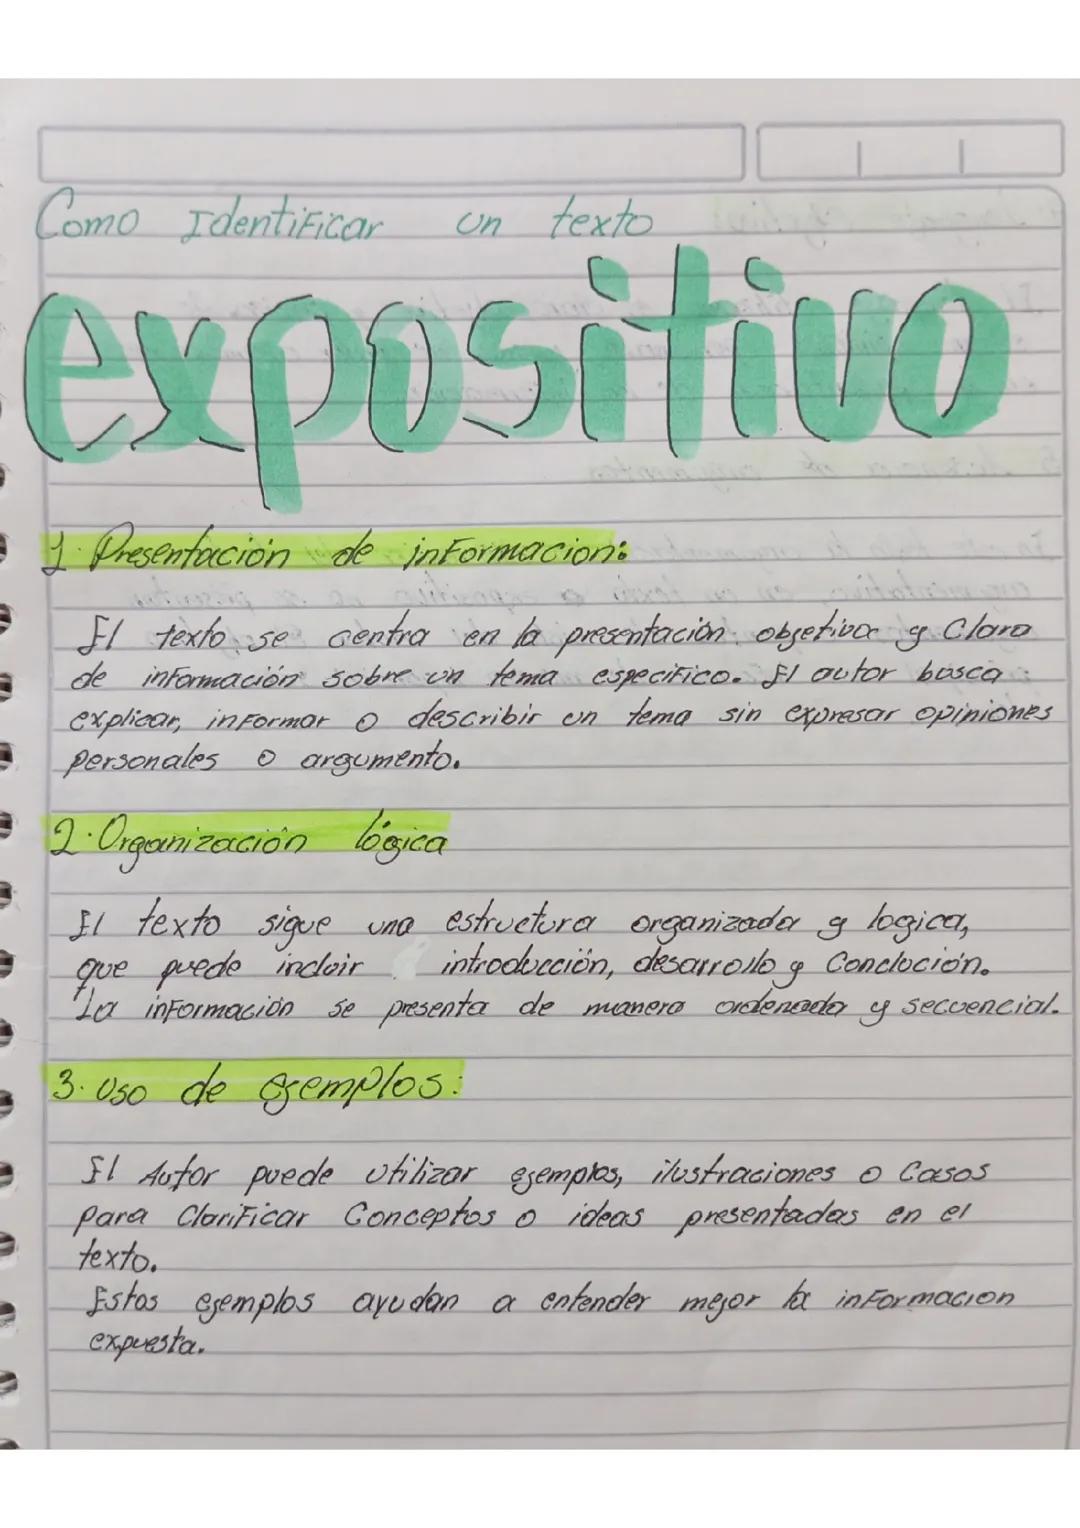 Como Identificar un texto
expositivo
1. Presentación de informacion:
El texto se centra en la presentación objetiva y Clara
de información sobre un tema especifico. El autor busca
explicar, informar o describir un tema sin expresar opiniones
personales o argumento.
2. Organización lógica
El texto sigue una estructura organizada y logica,
que puede incluir introducción, desarrollo y Conclución.
La información se presenta de manera ordenada y secuencial.
3. Uso de ejemplos:
El Autor puede utilizar ejemplos, ilustraciones o Casos
para Clarificar Conceptos o ideas presentadas en el
texto.
Estos ejemplos ayudan a entender mejor la informacion
expuesta.